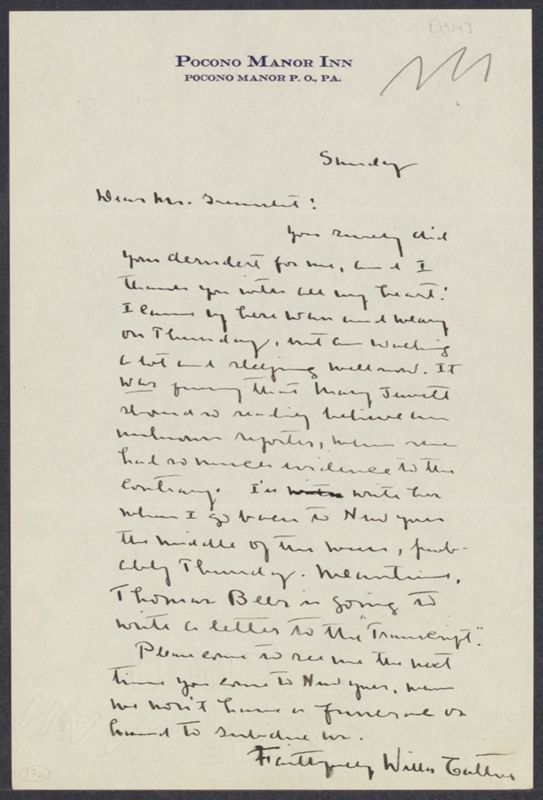 [1924]
POCONO MANOR INN
POCONO MANOR P. O., PA.
Sunday
Dear Mr.
You surely did
your derndest for me, and I
thank you with all my heart!
I came up here worn and weary
on Thursday, but am walking
a lot and sleeping well now. It
was funny that Mary Jewett
should so readily believe an
unknown reporter, when she
had so much evidence to the
contrary. I'll write her
when I go back to New York
the middle of the week, prob-
ably Thursday. Meantime,
Thomas Beer is going to
write a letter to the "Transcript".
Please come to see me the next
time you come to New York, when
we won't have a funeral on
hand to subdue us.
Faithfully Willa Cather